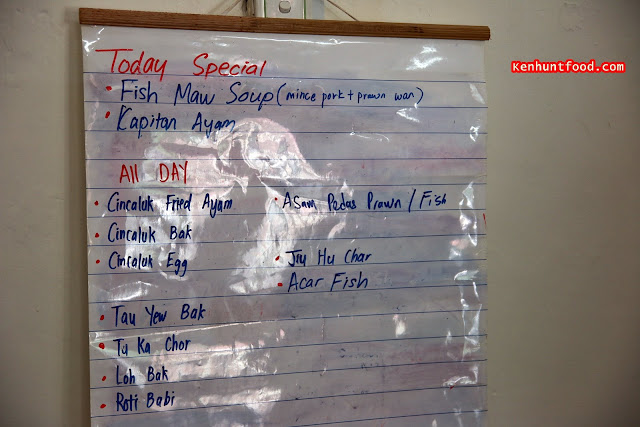 Kenhuntfood.com
Today Special
• Fish Maw Soup (mince pork + prawn wan)
• Kapitan Ayam
All DAY
• Cincaluk Fried Ayam • Asam Pedas Prawn / Fish
• Cincaluk Bak
• Cincaluk Egg • Jiu Hu Char
• Acar Fish
• Tau Yew Bak
• Tu Ka Chor
• Loh Bak
• Roti Babi